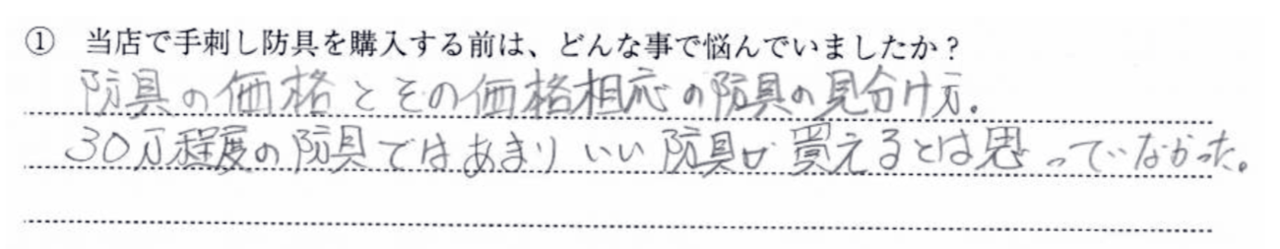 ① 当店で手刺し防具を購入する前は、どんな事で悩んでいましたか？
防具の価格とその価格相応の防具の見分け方。
30万程度の防具ではあまりいい防具が買えるとは思っていなかった。